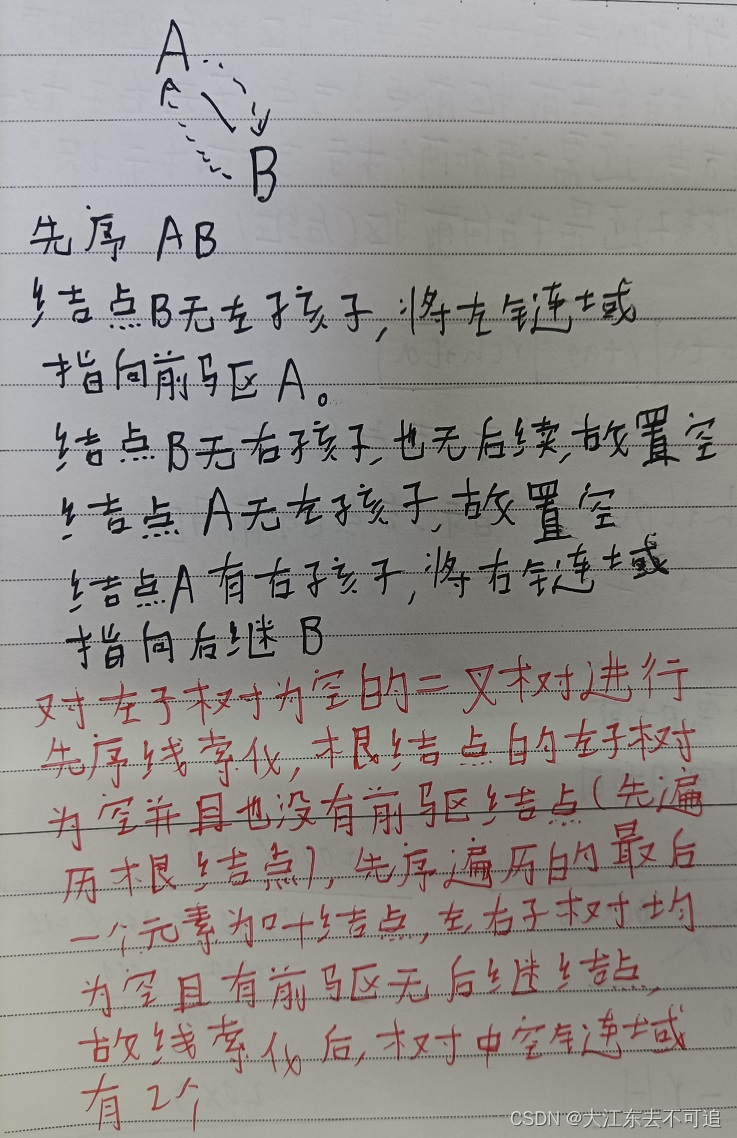 A
B
先序 AB
结点B无左子孩子,将左链域
指向前驱A。
结点B无右孩子,也无后续,故置空
结点A无左子孩子,故置空
结点A有右子孩子,将右链域
指向后继B
对左子树为空的二叉树进行
先序线索化,根结点的左子树
为空并且也没有前驱结点(先遍
历根结点),先序遍历的最后
一个元素为叶结点,左,右子树均
为空且有前驱无后继结点,
故线索化后,树中空链域
有2个
CSDN @大江东去不可追